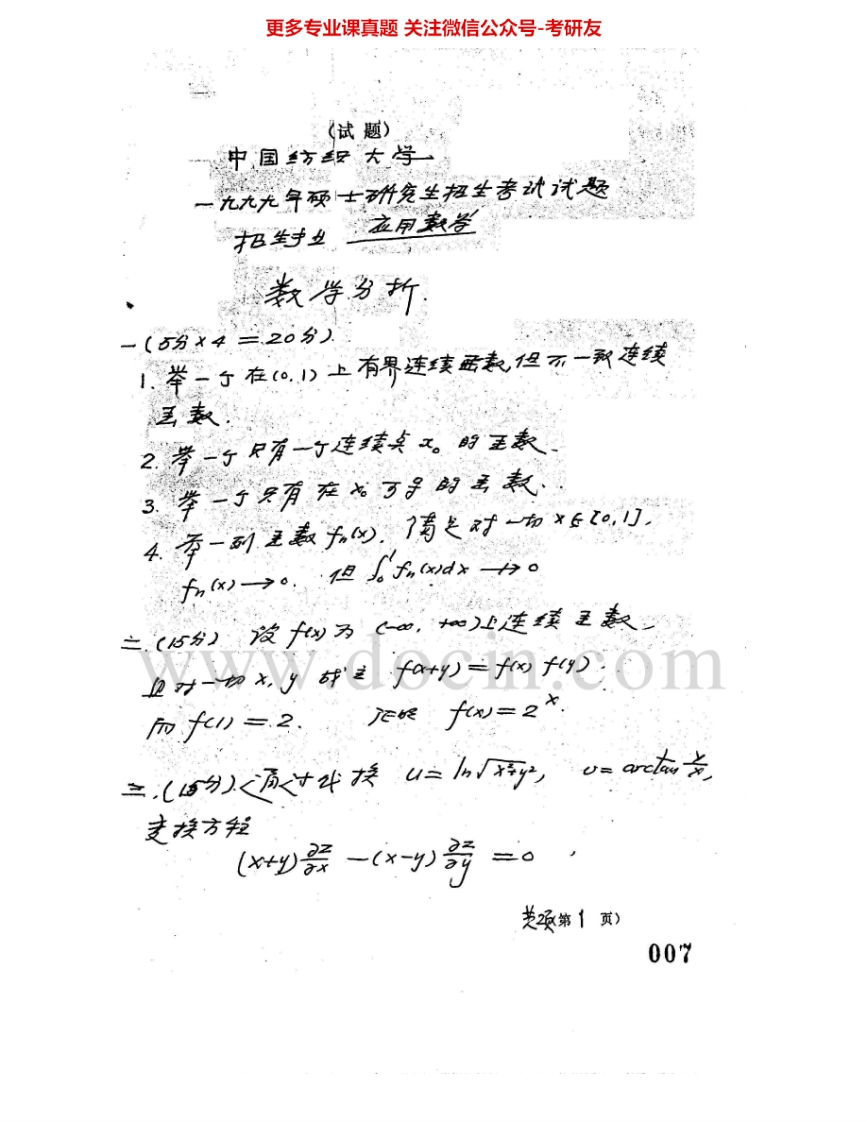 更多专业课真题 关注微信公众号-考研友
(试 题)
中国纺织大学
一九九九年硕士研究生招生考试试题
招生专业 应用数学
数学分析.
一(5分×4=20分).
1. 举一个在(0,1)上有界连续函数,但不一致连续
函数.
2. 举一个只有一个连续点 x₀ 的函数.
3. 举一个只有在 x₀ 可导的函数.
4. 举一列函数 fₙ(x). 满足对一切 x∈[0,1],
fₙ(x)→0. 但 ∫₀¹fₙ(x)dx ↛ 0
二.(15分) 设 f(x)为 (-∞, +∞)上连续函数,
且对一切 x, y 成立 f(x+y)=f(x) f(y).
而 f(1)=2. 证明 f(x)=2ˣ.
三.(15分).通过代换 u=ln√x²+y², v=arctan y/x,
变换方程
(x+y)∂z/∂x -(x-y)∂z/∂y =0
共2页第1 页)
007
www.docin.com